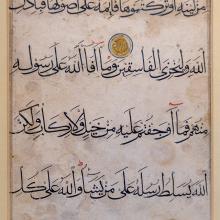 من لينة او تركتموها قايمة على اصولها فباذن
الله وليخزى الفاسقين وما أفا الله على رسوله
منهم فما أوجفتم عليه من خيل ولا ركاب ولكن
الله يسلط رسله على من يشآ والله على كل